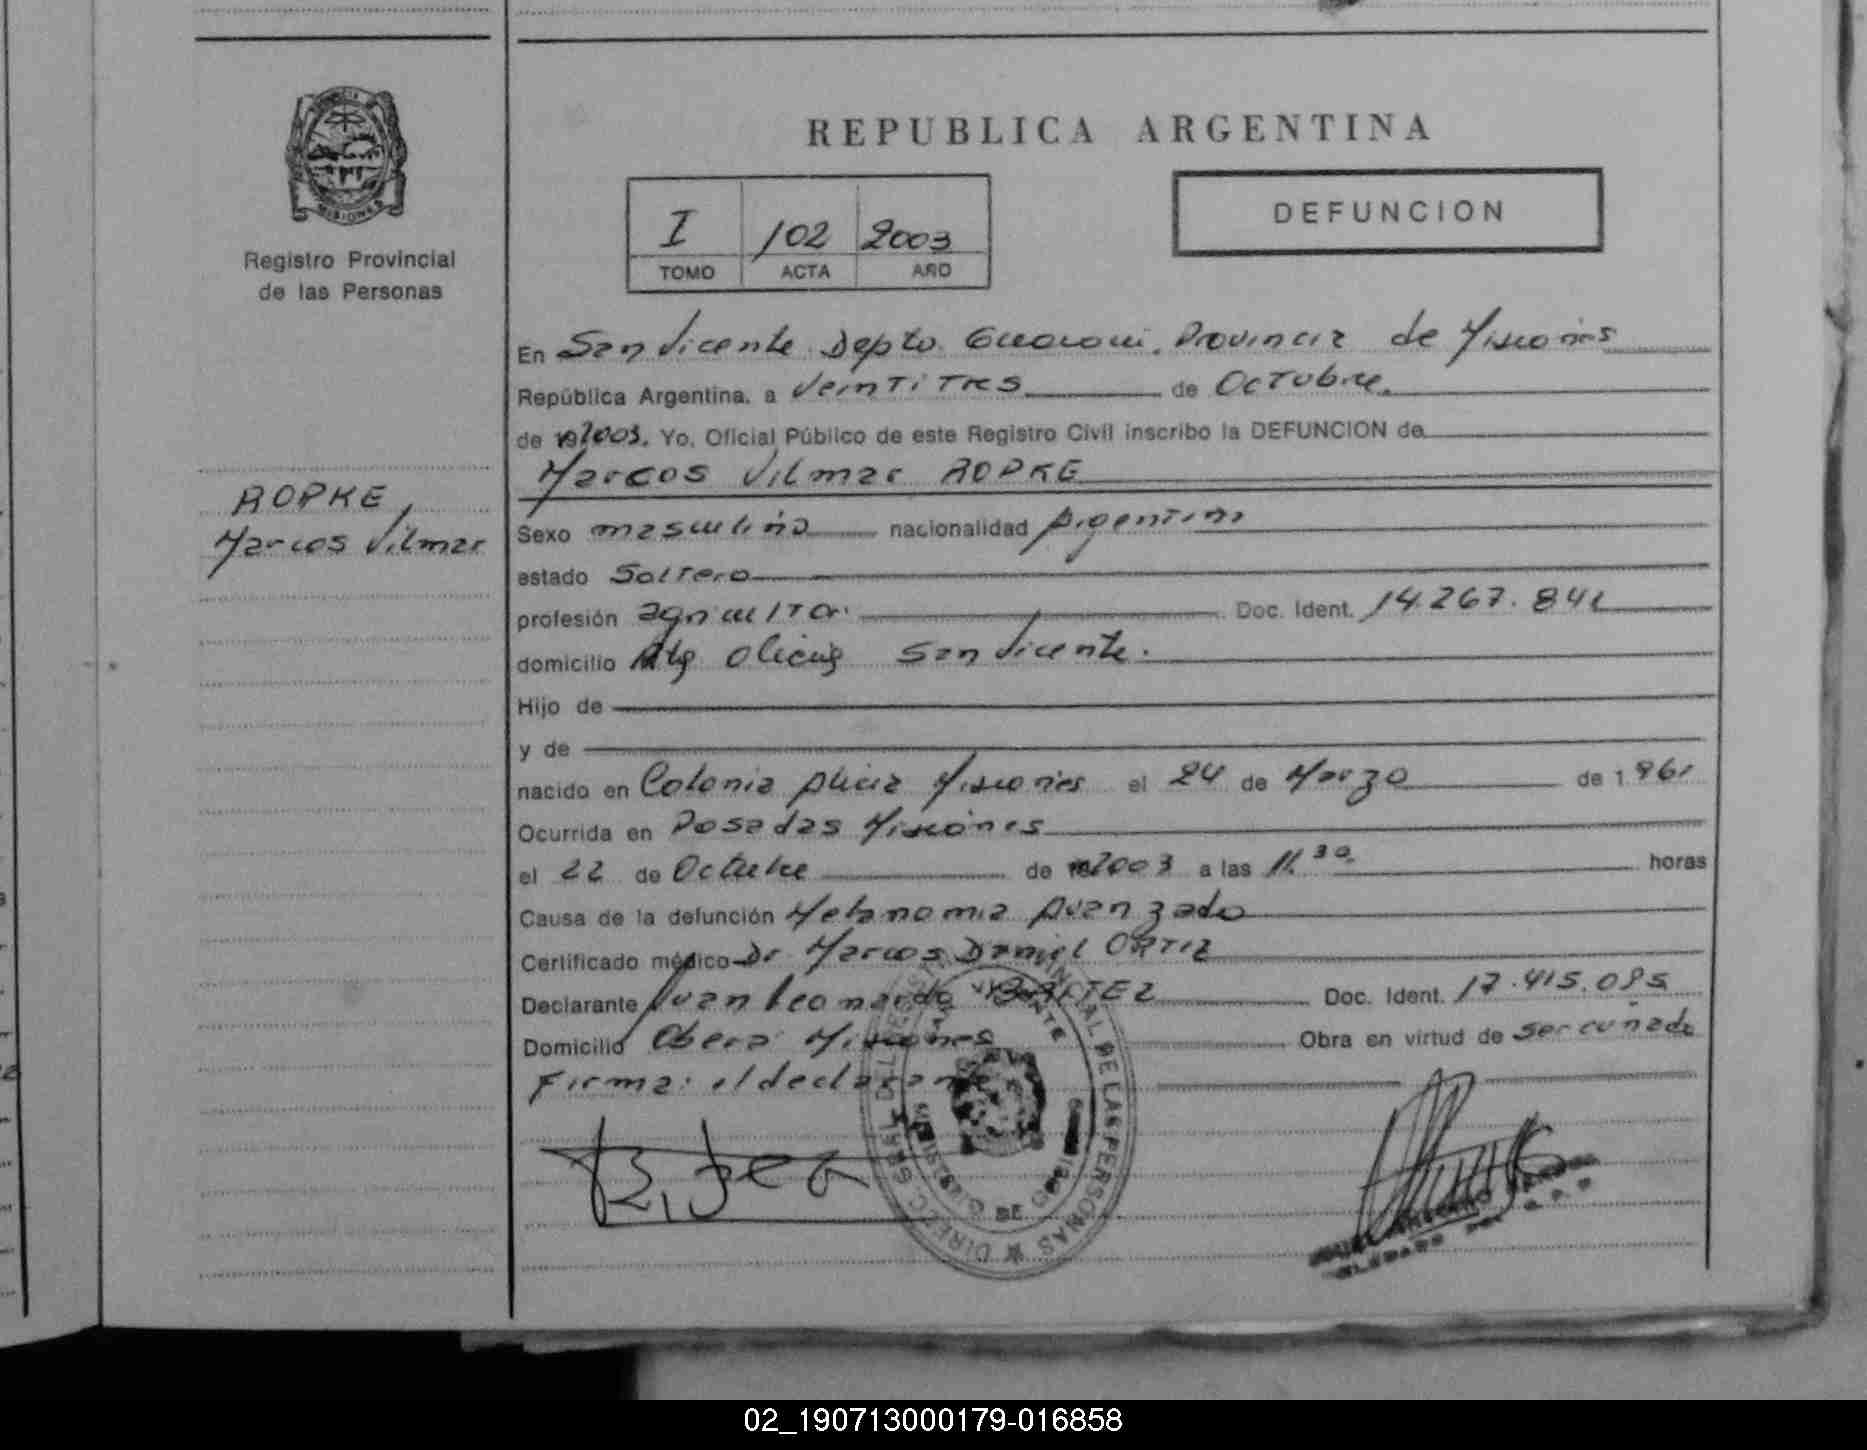 REPUBLICA ARGENTINA
I 102 2003
TOMO ACTA AÑO
DEFUNCION
MISIONES
Registro Provincial
de las Personas
ROPKE
Marcos Vilmar
En San Vicente Depto. Guarani. Provincia de Misiones
República Argentina, a Veintitres de Octubre.
de 192003. Yo, Oficial Público de este Registro Civil inscribo la DEFUNCION de
Marcos Vilmar ROPKE
Sexo masculino nacionalidad Argentino
estado Soltero
profesión agricultor. Doc. Ident. 14.267.841
domicilio San Vicente.
Hijo de
y de
nacido en Colonia Alicia Misiones el 24 de Marzo de 1.961
Ocurrida en Posadas Misiones
el 22 de Octubre de 192003 a las 11.30 horas
Causa de la defunción Melanomia Avanzado
Certificado médico Dr. Marcos Daniel ORTIZ
Declarante Juan Leonardo Doc. Ident. 17.415.095
Domicilio Obera Misiones Obra en virtud de ser cuñado
Firma: el declarante
DIREC. GRAL. DEL REGISTRO PROVINCIAL DE LAS PERSONAS
MINISTERIO DE GOBIERNO
02_190713000179-016858